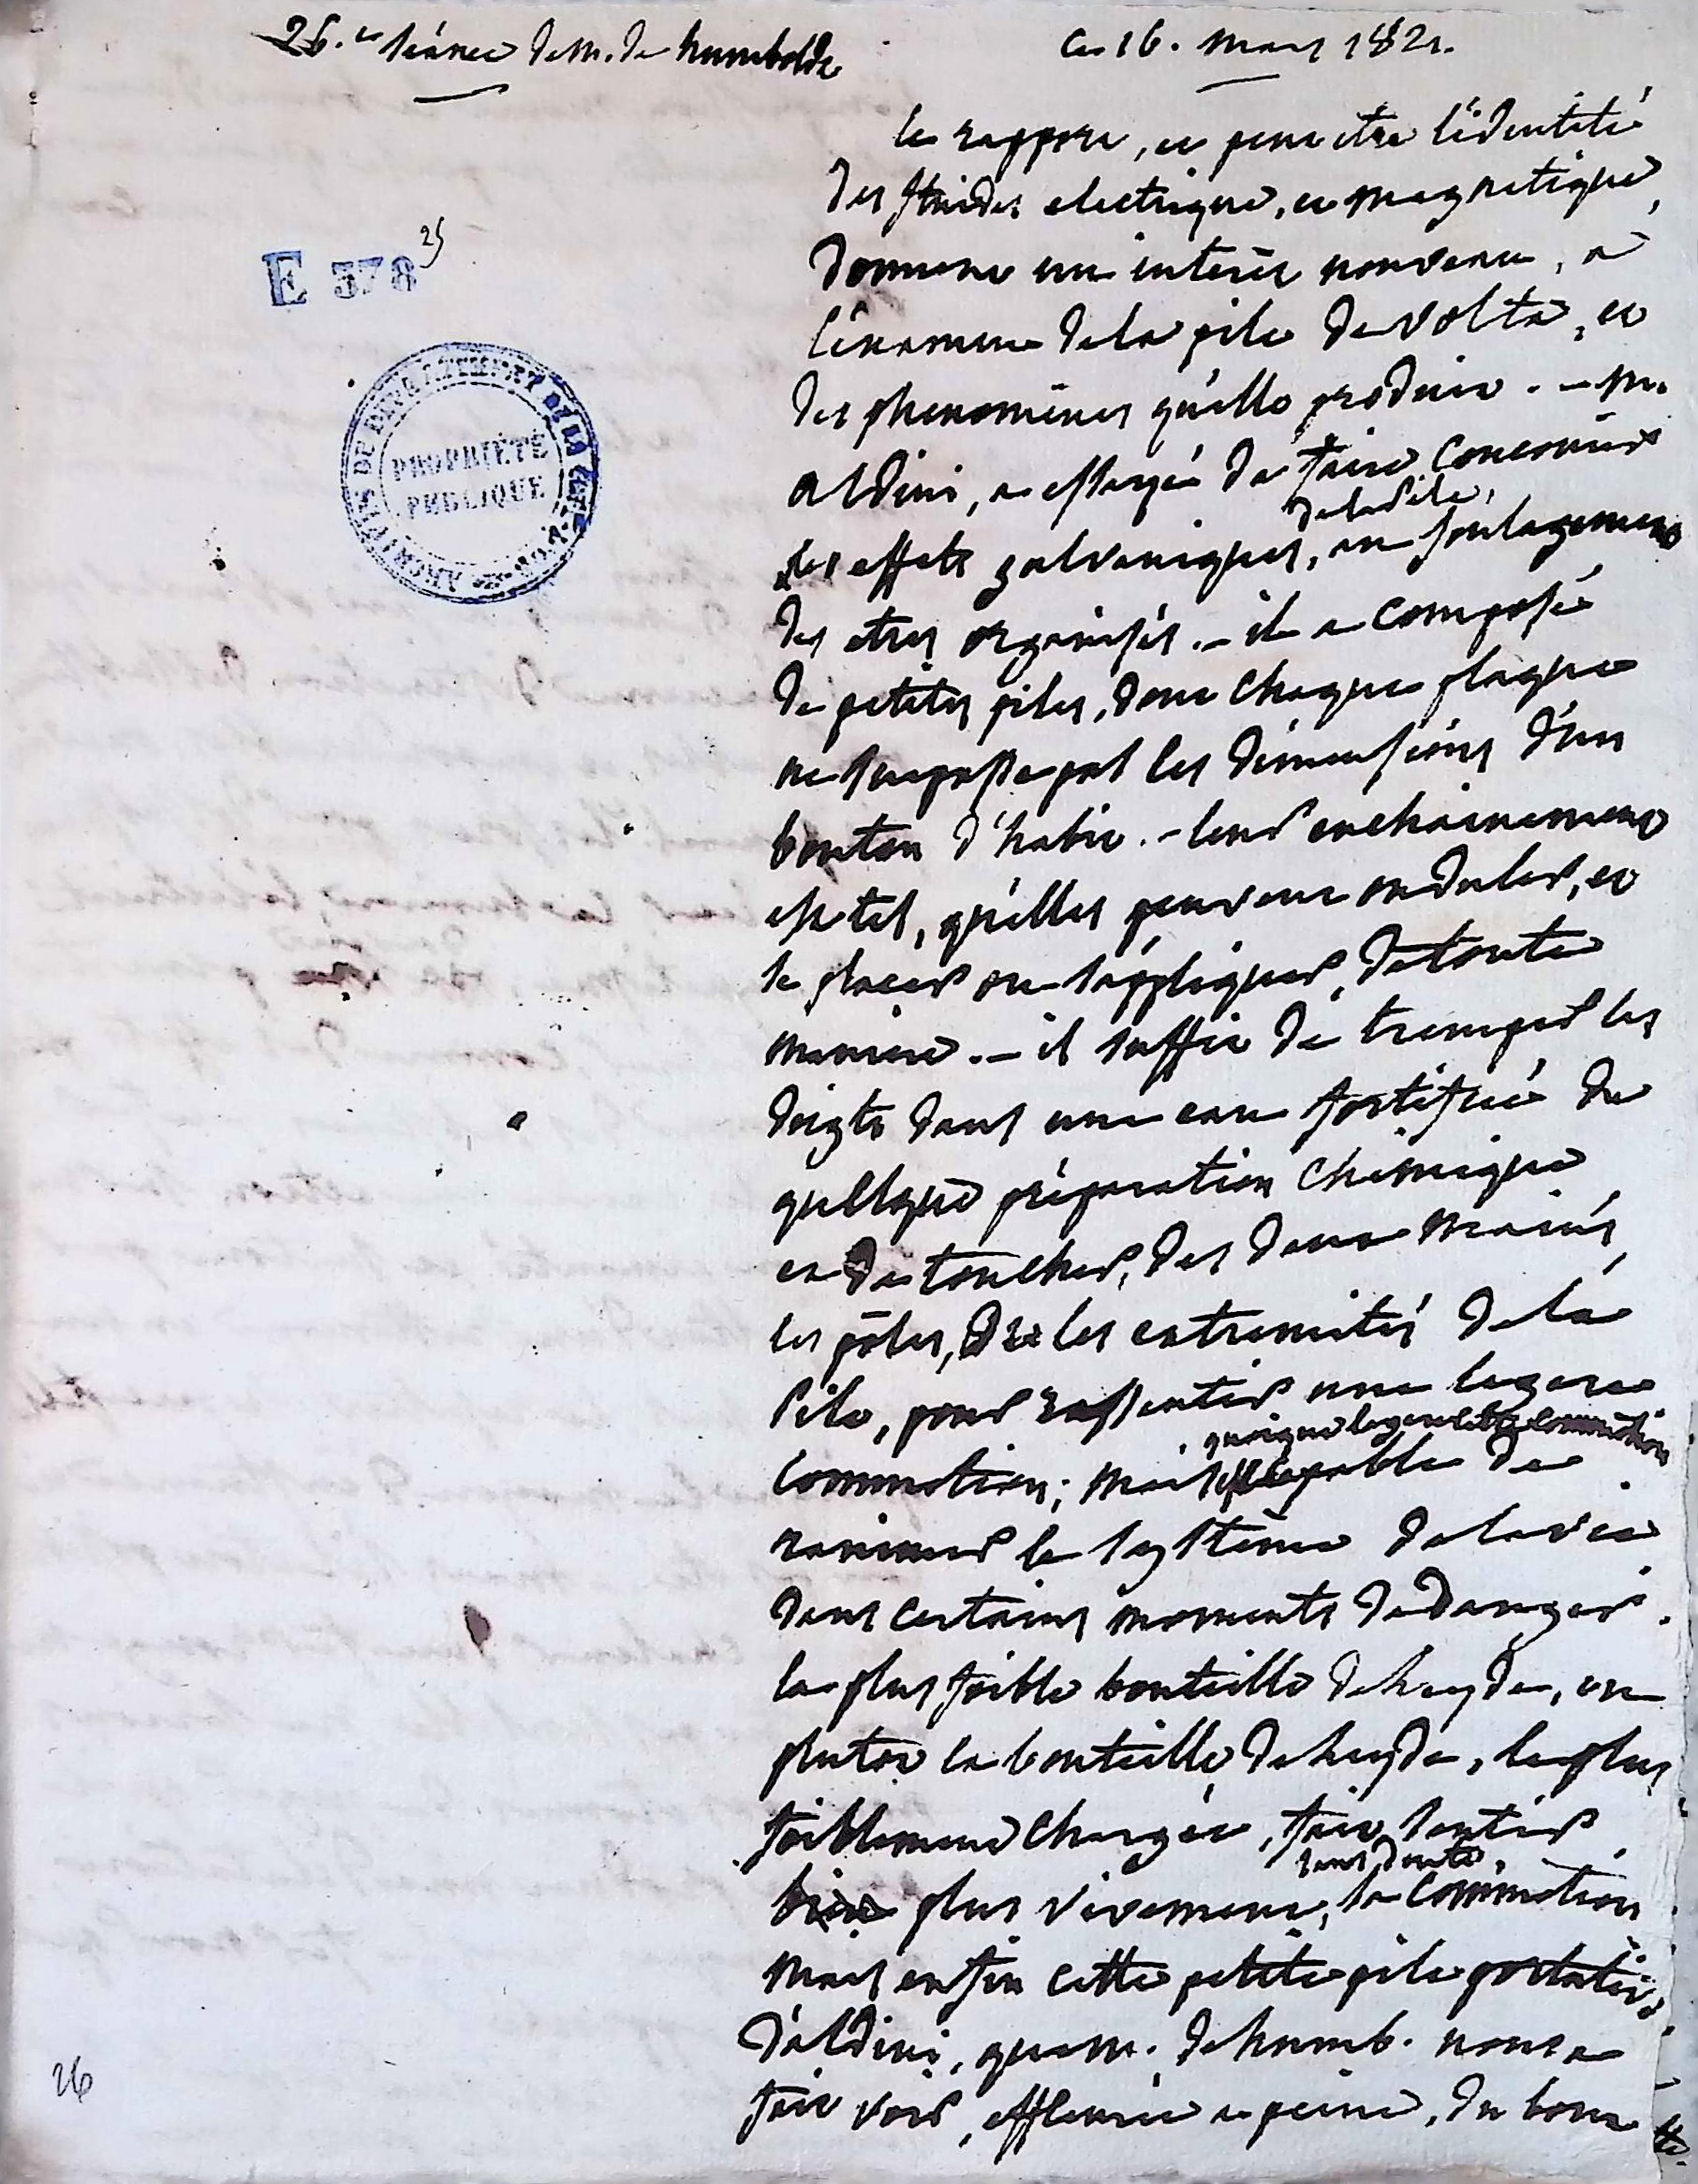 26.e séance de m. de humboldt
ce 16. mars 1821.
le rapport, et peut etre l'identité
des fluides electrique, et magnetique,
donnent un interêt nouveau, à
l'examen de la pile de volta, et
des phenomènes qu'elle produit. - m.
aldini, a essayé de faire concourir
de la pile,
les effets galvaniques, au soulagement
des etres organisés. - il a composé
de petites piles, dont chaque plaque
ne surpasse pas les dimensions d'un
bouton d'habit. - leur enchainement
est tel, qu'elles peuvent onduler, et
se placer ou s'appliquer, de toute
maniere. - il suffit de tremper les
doigts dans une eau fortifiée de
quelque préparation chimique
et de toucher, des deux mains,
les pôles, les extremités de la
pile, pour ressentir une legere
quoique legere cette commotion
commotion; mais capable de
ranimer le système de la vie
dans certains moments de danger.
la plus foible bouteille de leyde, ou
plutot la bouteille de leyde, la plus
foiblement chargée, fait sentir
sans doute,
bien plus vivement, la commotion
mais enfin cette petite pile portative
d'aldini, que m. de humb. nous a
fait voir, effleurée a peine, du bout
E 378 25
ARCHIVES DU DEPARTEMENT DE LA CÔTE-D'OR
PROPRIÉTÉ
PUBLIQUE
26